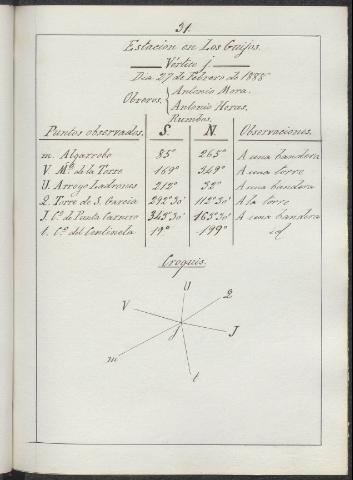 31.
Estacion en Los Guijos.
Vértice j
Dia 27 de Febrero de 1888
Obreros. Antonio Mora.
Antonio Heras.
Rumbos.
Puntos observados. S. N. Observaciones.
m. Algarrobo 85° 265° A una bandera
V. Mª. de la Torre 169° 349° A una torre
U. Arroyo Ladrones 212° 32° A una bandera
2. Torre de S. Garcia 292°30' 112°30' A la torre
J. Cº. de Punta Carnero 343°30' 163°30' A una bandera
t. Cº. del Centinela 19° 199° id.
Croquis.
U
2
V
j
J
m
t